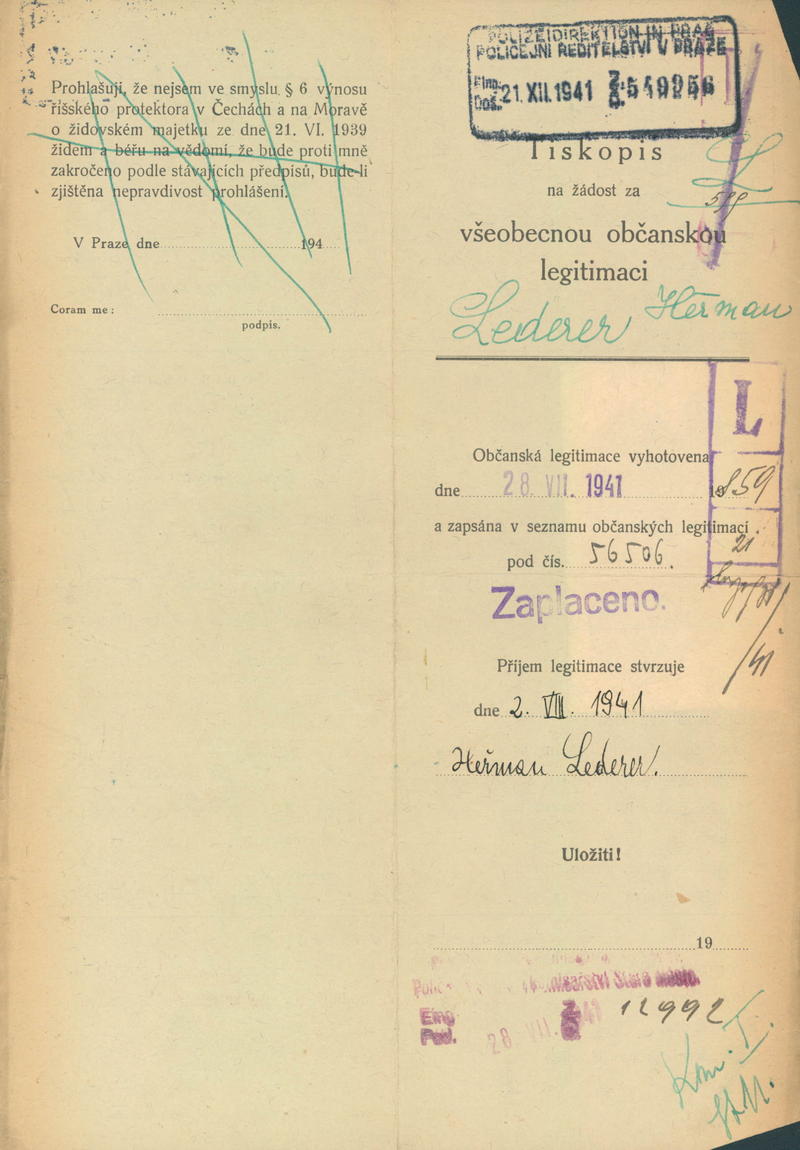 Prohlašuji, že nejsem ve smyslu § 6 výnosu
říšského protektora v Čechách a na Moravě
o židovském majetku ze dne 21. VI. 1939
židem a béřu na vědomí, že bude proti mně
zakročeno podle stávajících předpisů, bude-li
zjištěna nepravdivost prohlášení.
V Praze dne 194
Coram me :
podpis.
POLIZEIDIREKTION IN PRAG
POLICEJNÍ ŘEDITELSTVÍ V PRAZE
Eing.
Doš. 21. XII. 1941
Tiskopis
na žádost za
všeobecnou občanskou
legitimaci
Lederer Heřman
L
Občanská legitimace vyhotovena
dne 28. VII. 1941
859
a zapsána v seznamu občanských legitimací
21
pod čís. 56506.
Zaplaceno.
/41
Příjem legitimace stvrzuje
dne 2. VIII. 1941
Heřman Lederer.
Uložiti!
19
Staré město
Eing
Pod. 28. VII. 1941 12992